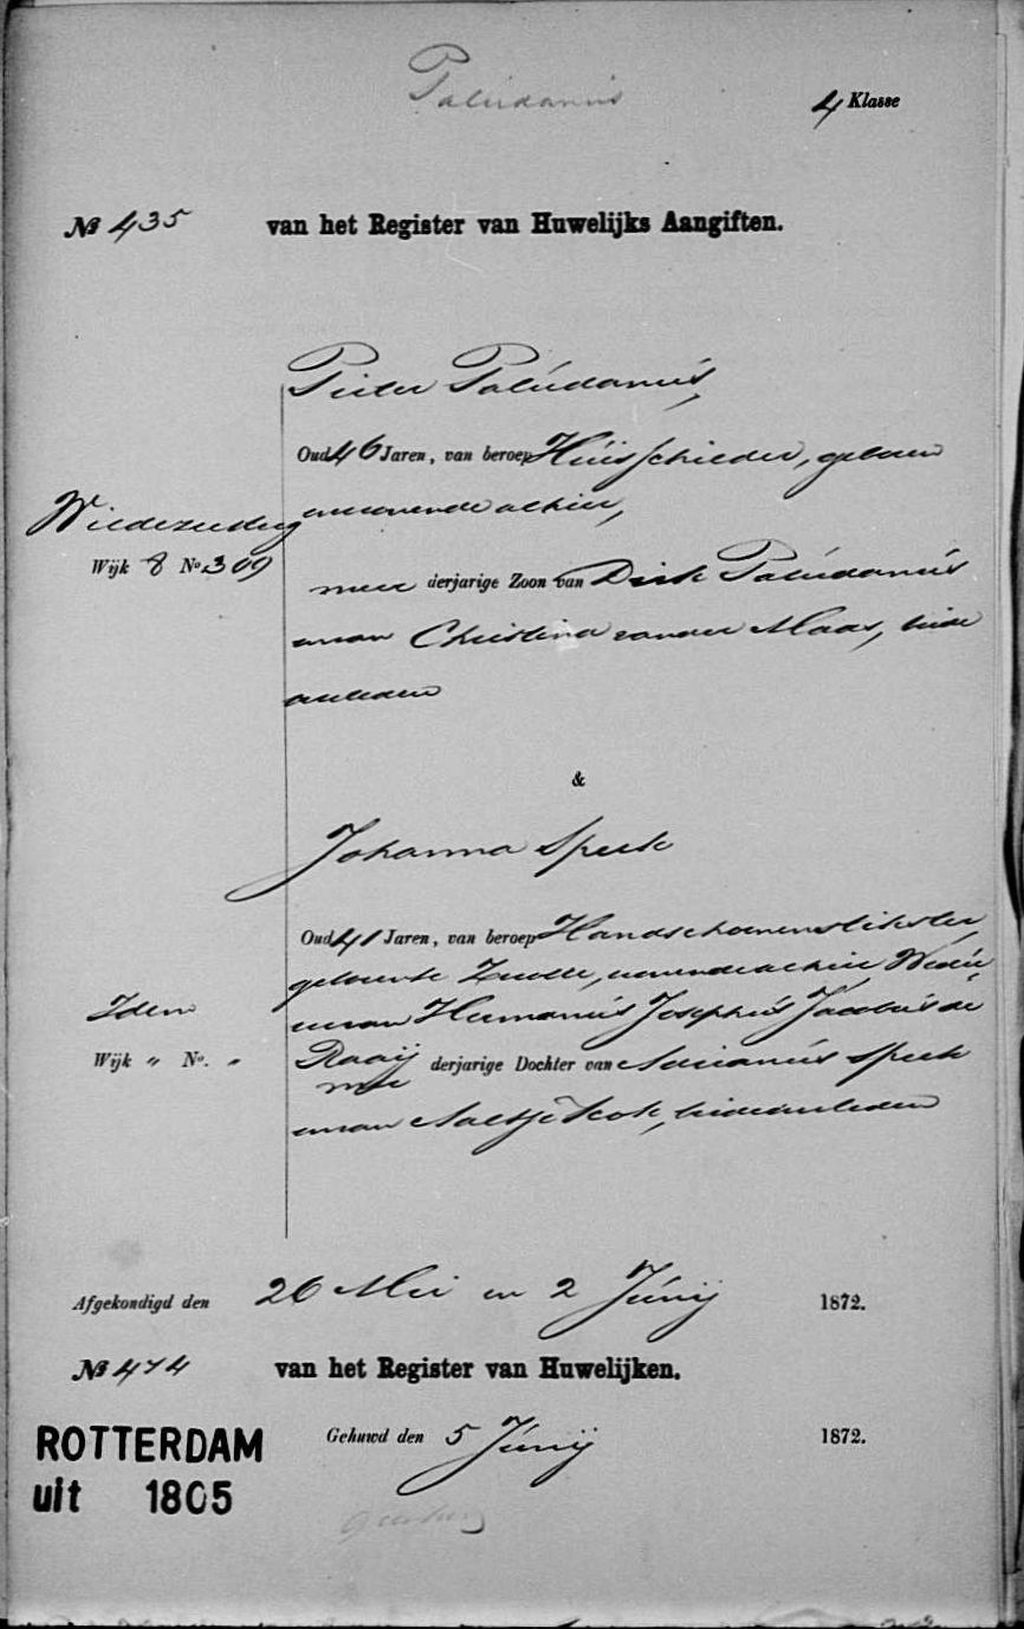 Paludanus
4 Klasse
No 435 van het Register van Huwelijks Aangiften.
Pieter Paludanus,
Oud 46 Jaren, van beroep Huisschilder, geboren
en wonende alhier,
Wijk 8 No. 309
meerderjarige Zoon van Dirk Paludanus
en van Christina van der Maas, beide
overleden
&
Johanna Speek
Oud 41 Jaren, van beroep Handschoenenstikster,
geboren te Zwolle, wonende alhier Wedu-
we van Hermanus Josephus Jacobus de
Idem
Wijk " No. "
Raaij meerderjarige Dochter van Adrianus Speek
en van Aaltje Kok, beide overleden
Afgekondigd den 26 Mei en 2 Junij 1872.
No 474 van het Register van Huwelijken.
Gehuwd den 5 Junij 1872.
ROTTERDAM
uit 1805